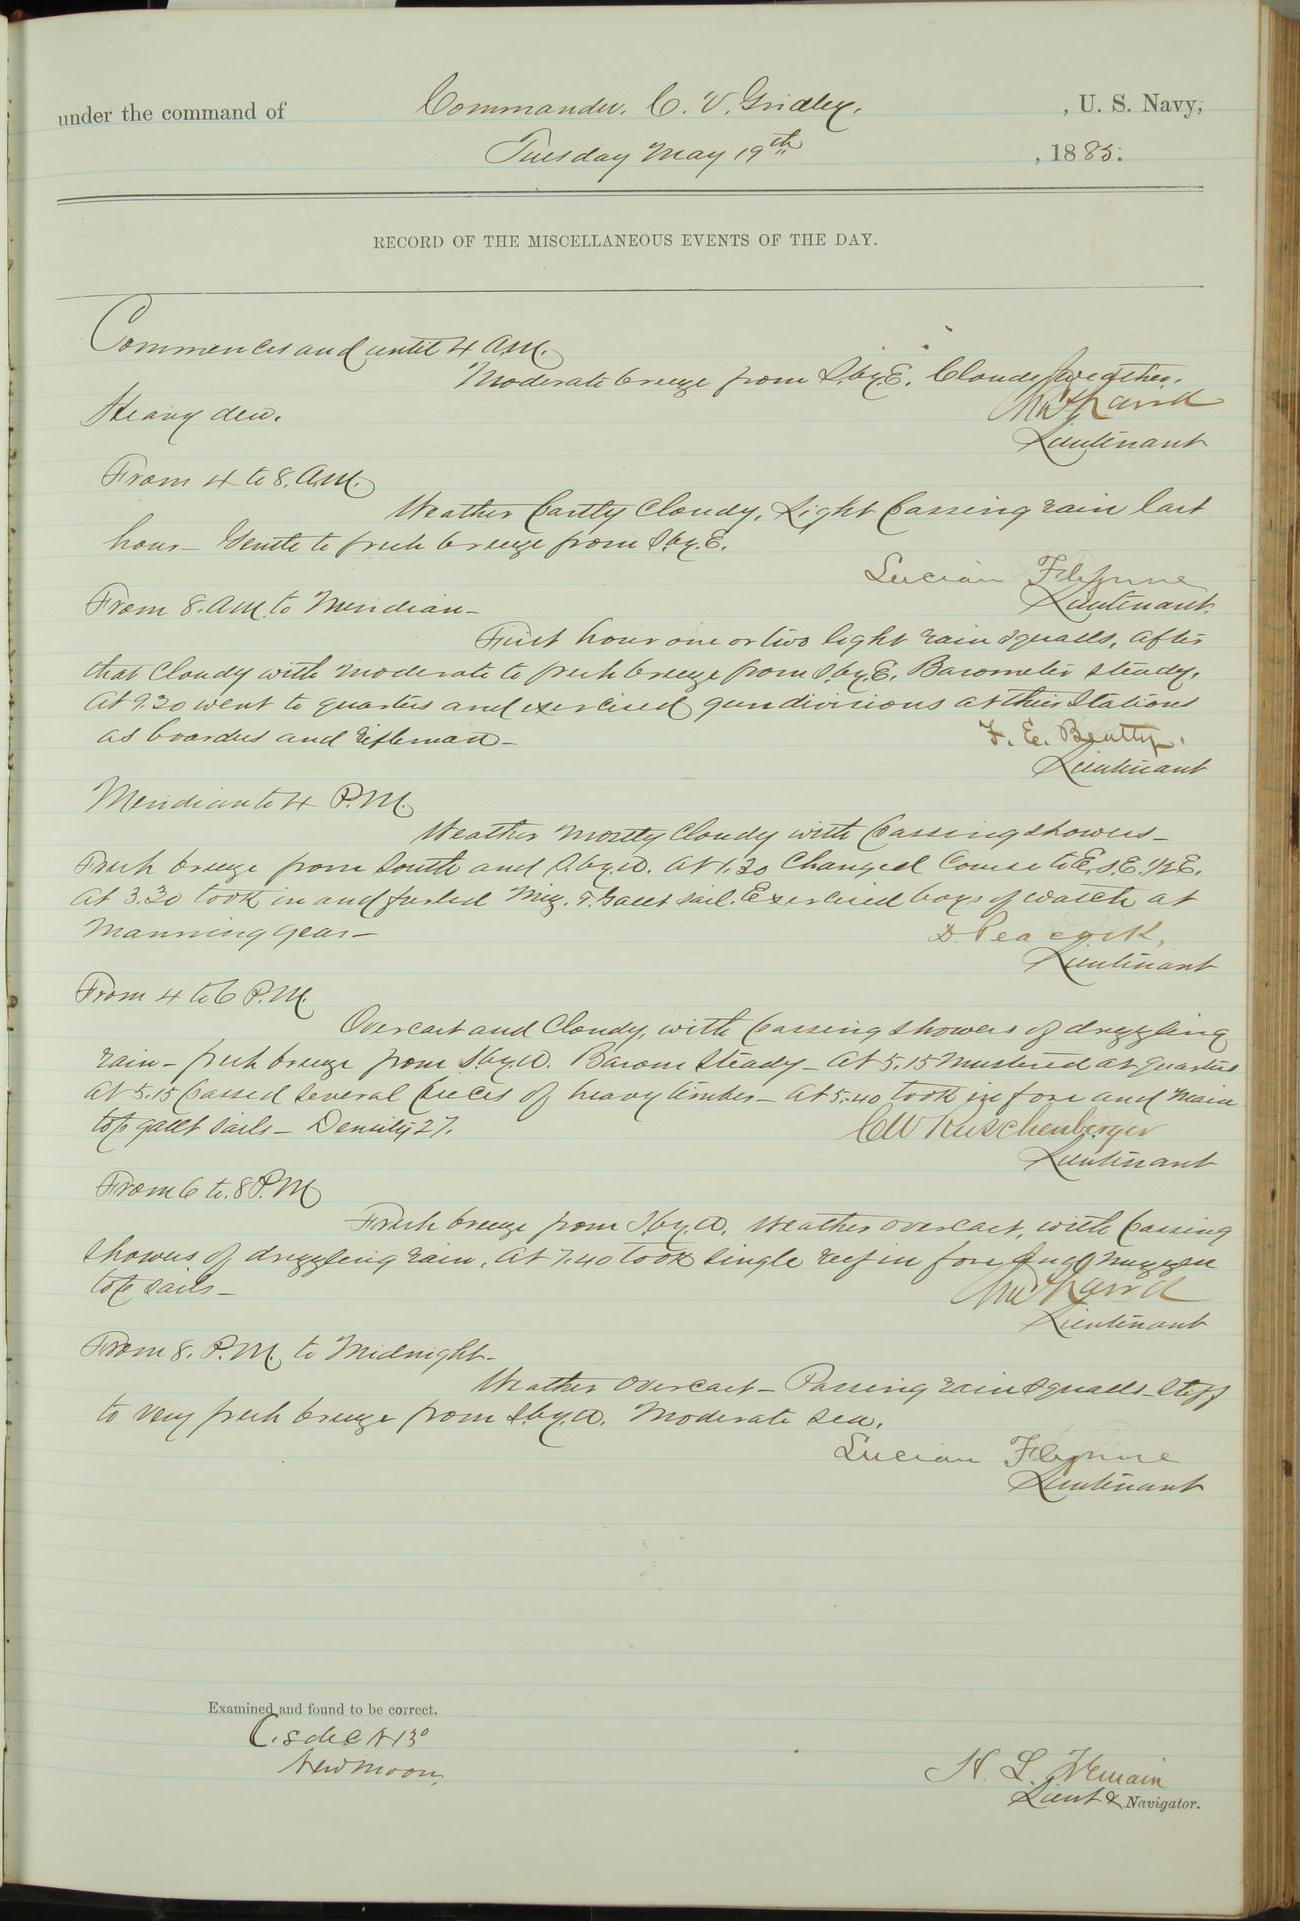 under the command of Commander. C. V. Gridley. , U. S. Navy,
Tuesday May 19th , 1885.
RECORD OF THE MISCELLANEOUS EVENTS OF THE DAY.
Commences and until 4 A.M.
Moderate breeze from S. by E. Cloudy weather.
Heavy dew.
Lieutenant
From 4 to 8. A.M.
Weather partly cloudy. Light passing rain last
hour - Gentle to fresh breeze from S. by E.
Lucian Flynne
Lieutenant.
From 8. A.M. to Meridian -
First hour one or two light rain squalls, after
that cloudy with moderate to fresh breeze from S. by E. Barometer steady.
At 9.30 went to quarters and exercised gun divisions at their stations
as boarders and riflemen -
F. E. Beatty.
Lieutenant
Meridian to 4 P.M.
Weather mostly cloudy with passing showers -
Fresh breeze from South and S. by W. At 1.30 changed course to E.S.E. 1/2 E.
At 3.30 took in and furled Miz. T. Gallt sail. Exercised boys of watch at
manning gear -
D. Peacock,
Lieutenant
From 4 to 6 P.M.
Overcast and cloudy, with passing showers of drizzling
rain - fresh breeze from S. by W. Barom steady - At 5.15 mustered at quarters
At 5.15 passed several pieces of heavy timber - At 5.40 took in fore and main
top gallt sails - Density 27.
C W Ruschenberger
Lieutenant
From 6 to. 8 P.M.
Fresh breeze from S by W. Weather overcast, with passing
showers of drizzling rain. At 7.40 took single reef in fore and mizzen
top sails -
Lieutenant
From 8. P.M. to Midnight -
Weather overcast - Passing rain squalls - Stiff
to very fresh breeze from S. by W. Moderate sea.
Lucian Flynne
Lieutenant
Examined and found to be correct.
New moon,
H. L.
Lieut & Navigator.